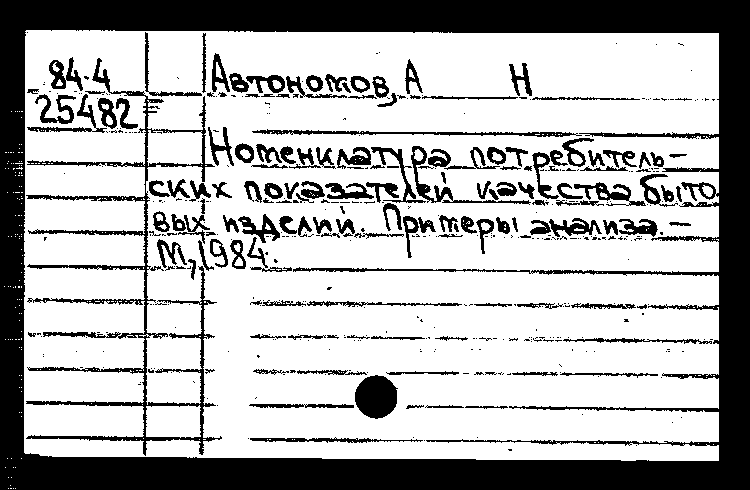 84.4 Автономов, А Н
25482
Номенклатура потребитель-
ских показателей качества быто
вых изделий. Примеры анализа.-
М, 1984.